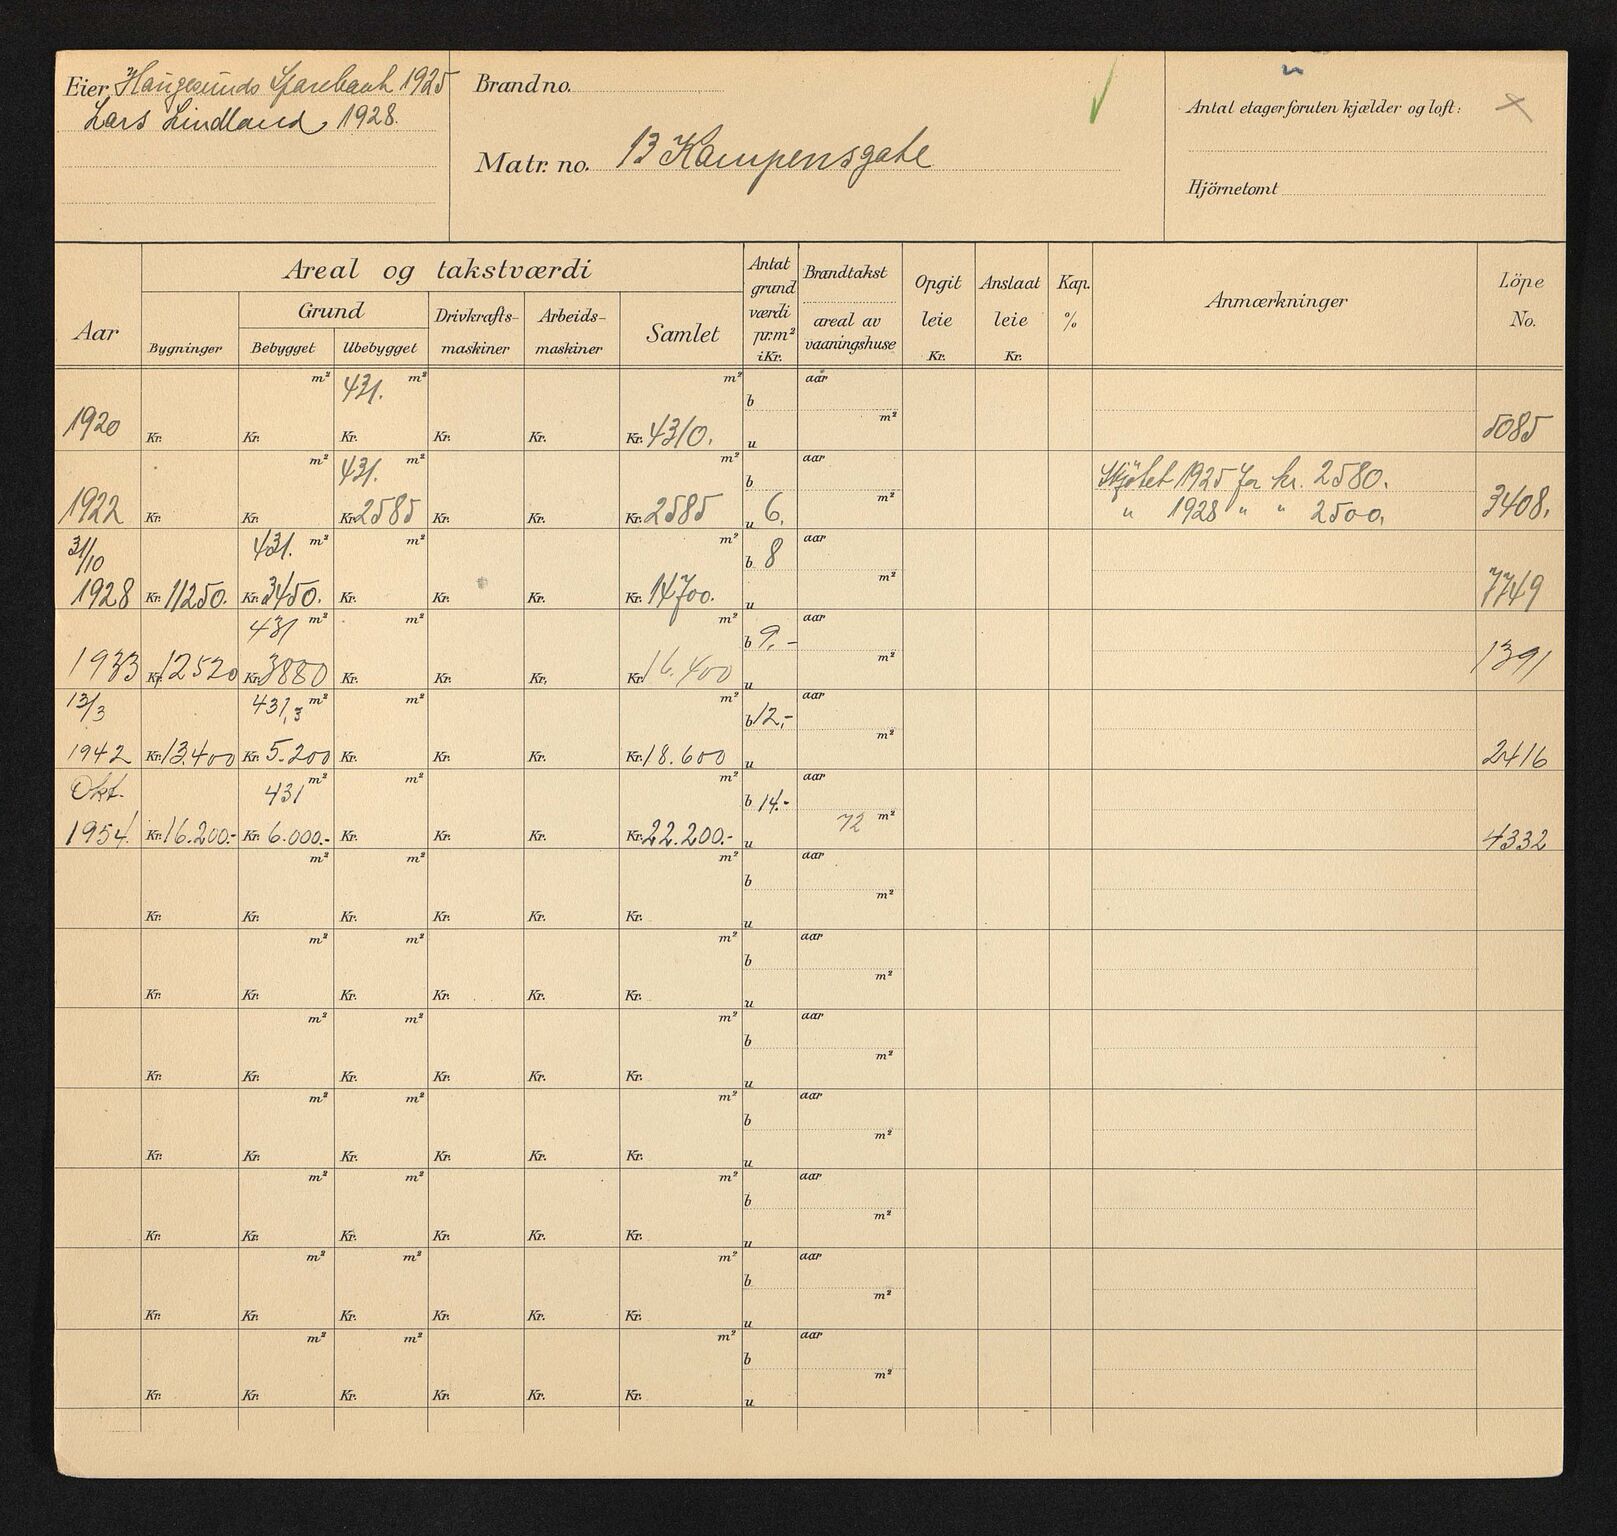 Eier Haugesunds Sparebank 1925
Lars Lindland 1928.
Brand no.
Matr. no. 13 Kampensgate
Antal etager foruten kjælder og loft:
Hjörnetomt
Aar
Areal og takstværdi
Bygninger
Grund
Bebygget
Ubebygget
Drivkrafts-
maskiner
Arbeids-
maskiner
Samlet
Antat
grund
værdi
pr. m²
i Kr.
Brandtakst
areal av
vaaningshuse
Opgit
leie
Kr.
Anslaat
leie
Kr.
Kap.
%
Anmærkninger
Löpe
No.
m² 431. m² m² b aar
1920 Kr. Kr. Kr. Kr. Kr. Kr. 4310. u m² 5085
m² 431. m² m² b aar Skjötet 1925 for kr. 2580.
1922 Kr. Kr. Kr. 2585 Kr. Kr. Kr. 2585 u 6. m² " 1928 " " 2500. 3408.
31/10 431. m² m² m² b 8 aar
1928 Kr. 11250. Kr. 3450. Kr. Kr. Kr. Kr. 14700. u m² 7749
431 m² m² m² b 9.- aar
1933 Kr. 12520 Kr. 3880 Kr. Kr. Kr. Kr. 16.400 u m² 1391
13/3 431,3 m² m² m² b 12,- aar
1942 Kr. 13.400 Kr. 5.200 Kr. Kr. Kr. Kr. 18.600 u m² 2416
Okt. 431 m² m² m² b 14.- aar
1954. Kr. 16.200.- Kr. 6.000.- Kr. Kr. Kr. Kr. 22.200.- u 72 m² 4332
m² m² m² b aar
Kr. Kr. Kr. Kr. Kr. Kr. u m²
m² m² m² b aar
Kr. Kr. Kr. Kr. Kr. Kr. u m²
m² m² m² b aar
Kr. Kr. Kr. Kr. Kr. Kr. u m²
m² m² m² b aar
Kr. Kr. Kr. Kr. Kr. Kr. u m²
m² m² m² b aar
Kr. Kr. Kr. Kr. Kr. Kr. u m²
m² m² m² b aar
Kr. Kr. Kr. Kr. Kr. Kr. u m²
m² m² m² b aar
Kr. Kr. Kr. Kr. Kr. Kr. u m²